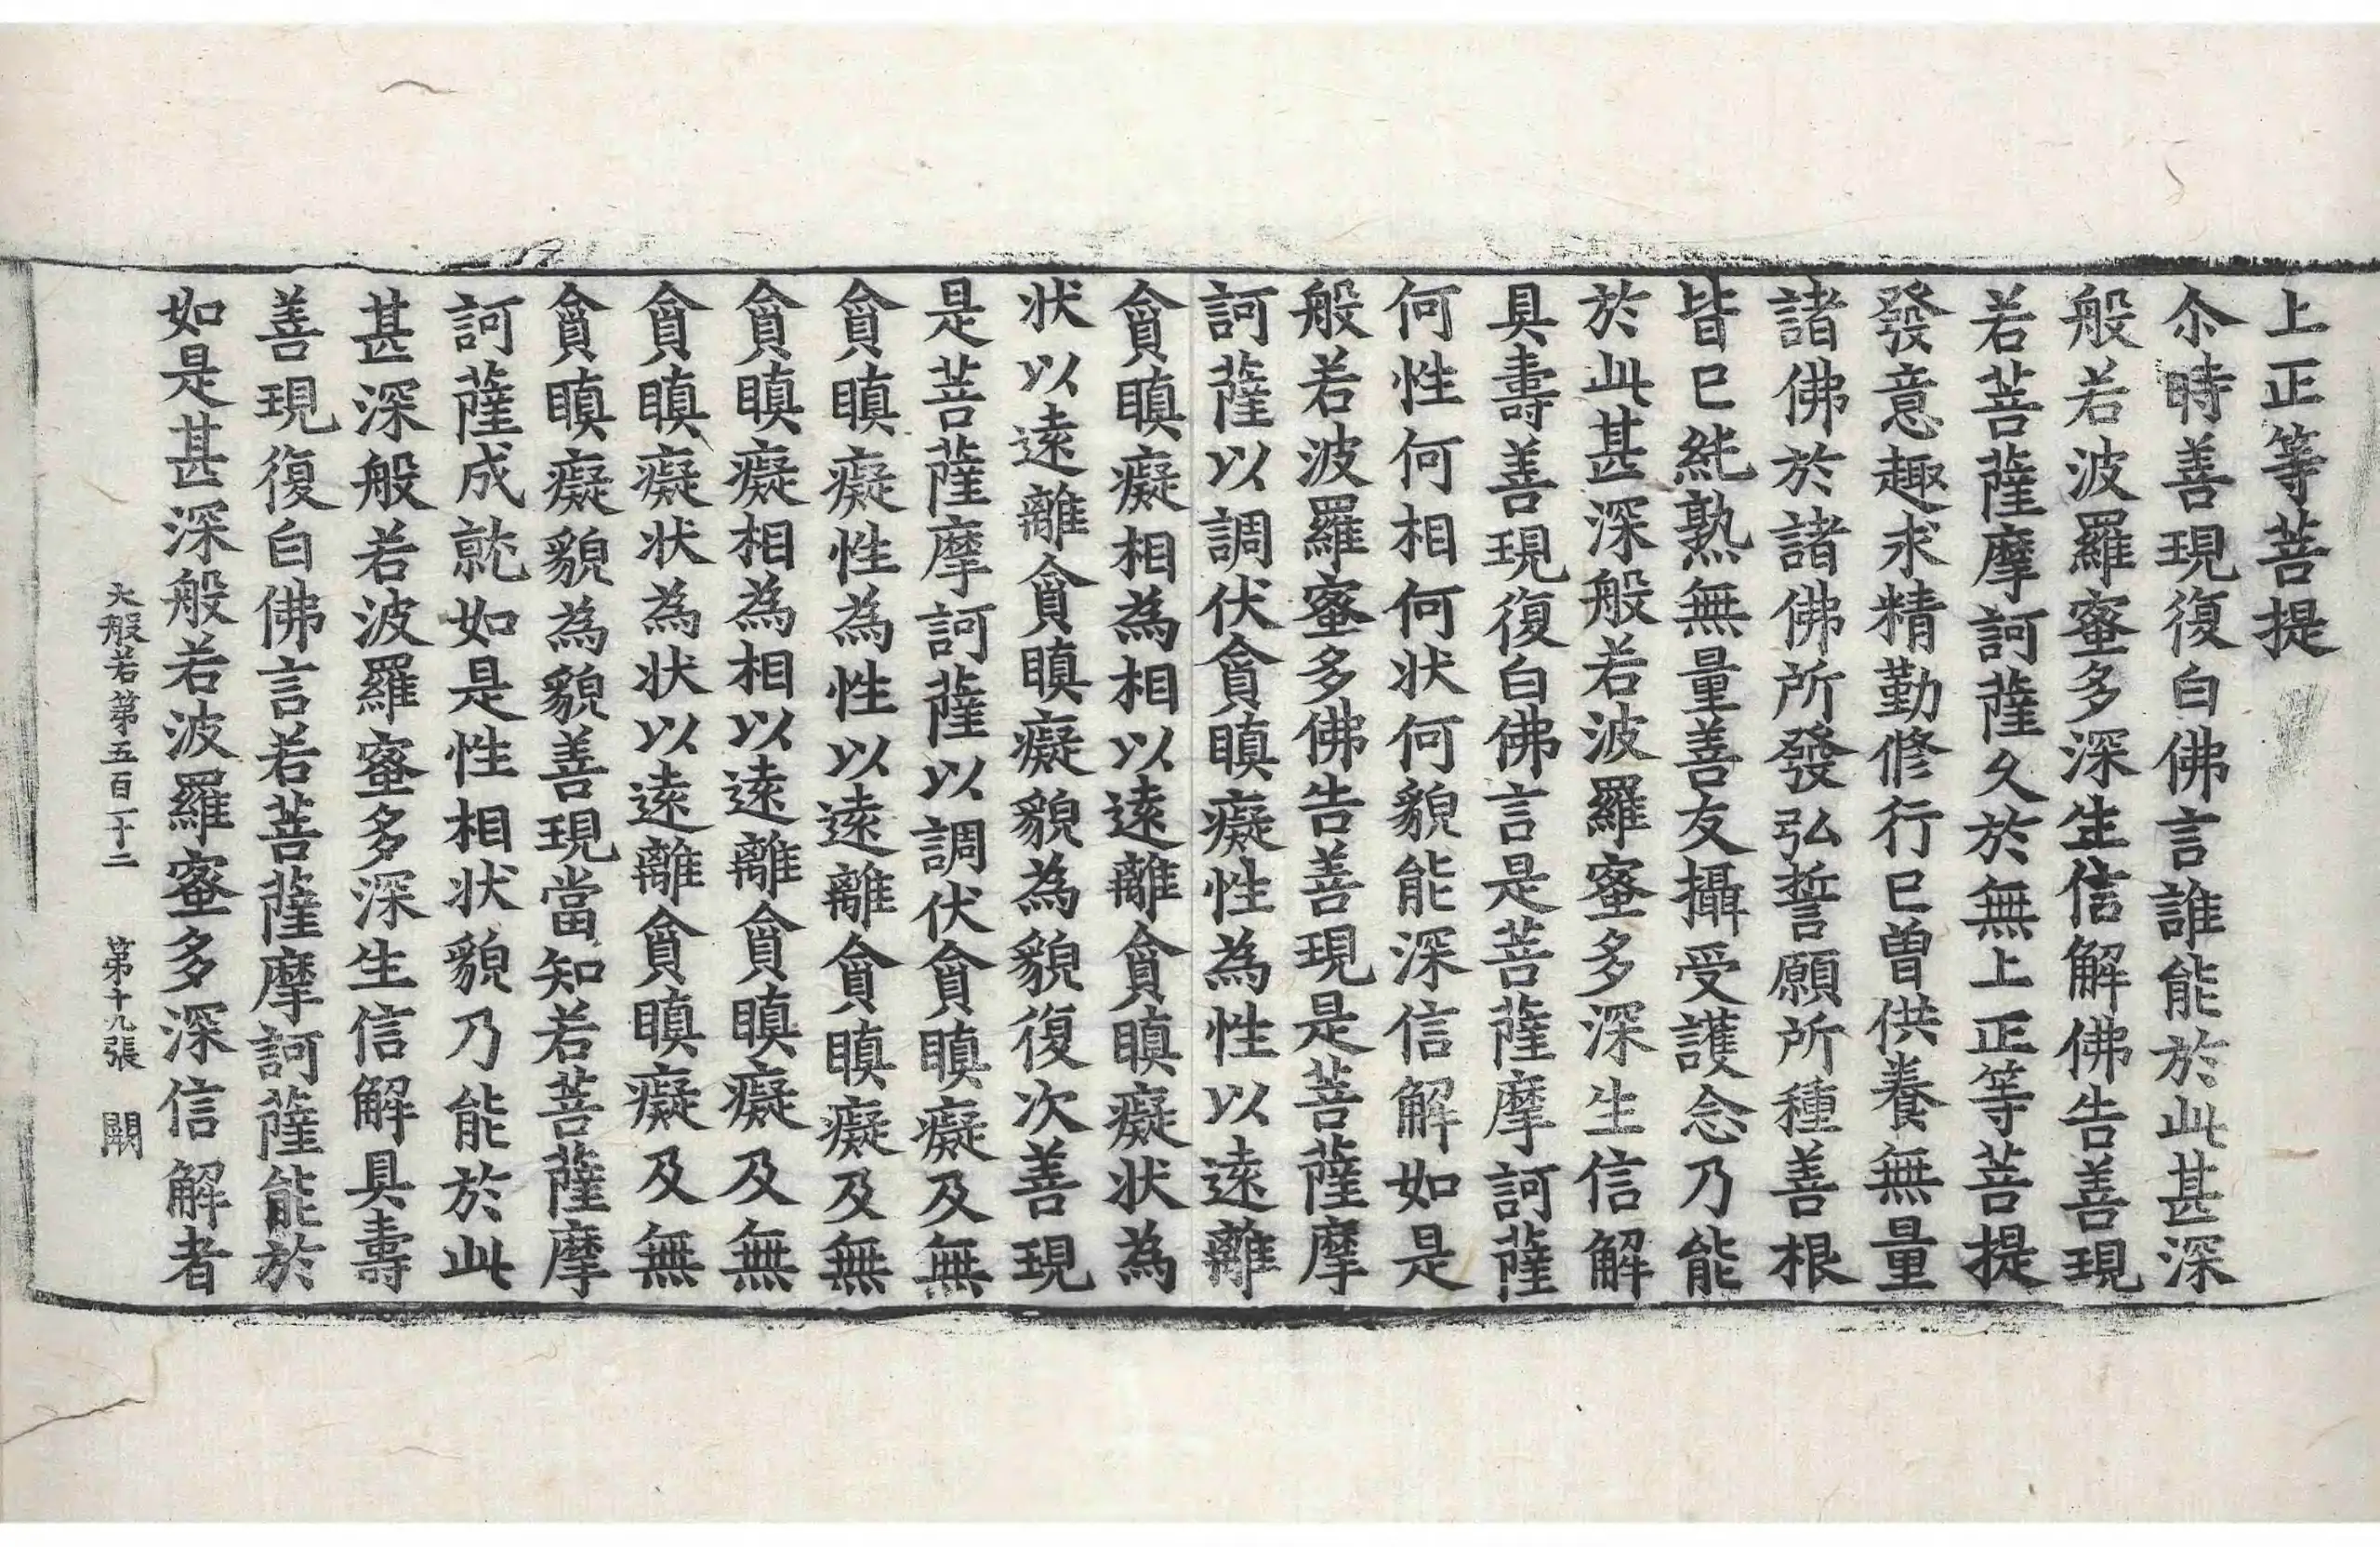 上正等菩提
尒時善現復白佛言誰能於此甚深
般若波羅蜜多深生信解佛告善現
若菩薩摩訶薩久於無上正等菩提
發意趣求精勤修行已曾供養無量
諸佛於諸佛所發弘誓願所種善根
皆已純熟無量善友攝受護念乃能
於此甚深般若波羅蜜多深生信解
具壽善現復白佛言是菩薩摩訶薩
何性何相何狀何貌能深信解如是
般若波羅蜜多佛告善現是菩薩摩
訶薩以調伏貪瞋癡性為性以遠離
貪瞋癡相為相以遠離貪瞋癡狀為
狀以遠離貪瞋癡貌為貌復次善現
是菩薩摩訶薩以調伏貪瞋癡及無
貪瞋癡性為性以遠離貪瞋癡及無
貪瞋癡相為相以遠離貪瞋癡及無
貪瞋癡狀為狀以遠離貪瞋癡及無
貪瞋癡貌為貌善現當知若菩薩摩
訶薩成就如是性相狀貌乃能於此
甚深般若波羅蜜多深生信解具壽
善現復白佛言若菩薩摩訶薩能於
如是甚深般若波羅蜜多深信解者
大般若第五百一十二 第十九張 闕